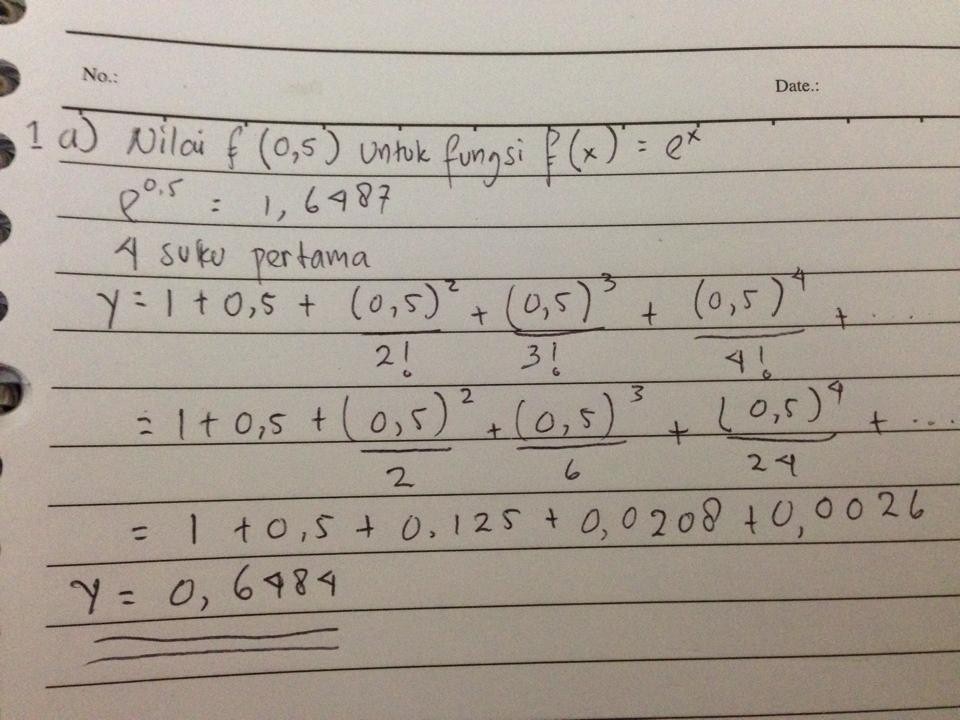 No.: Date.:
1 a) Nilai f (0,5) untuk fungsi f(x) = e^x
e^0.5 = 1,6487
4 suku pertama
y = 1 + 0,5 + (0,5)^2/2! + (0,5)^3/3! + (0,5)^4/4! + ....
= 1 + 0,5 + (0,5)^2/2 + (0,5)^3/6 + (0,5)^4/24 + ...
= 1 + 0,5 + 0.125 + 0,0208 + 0,0026
y = 0,6484